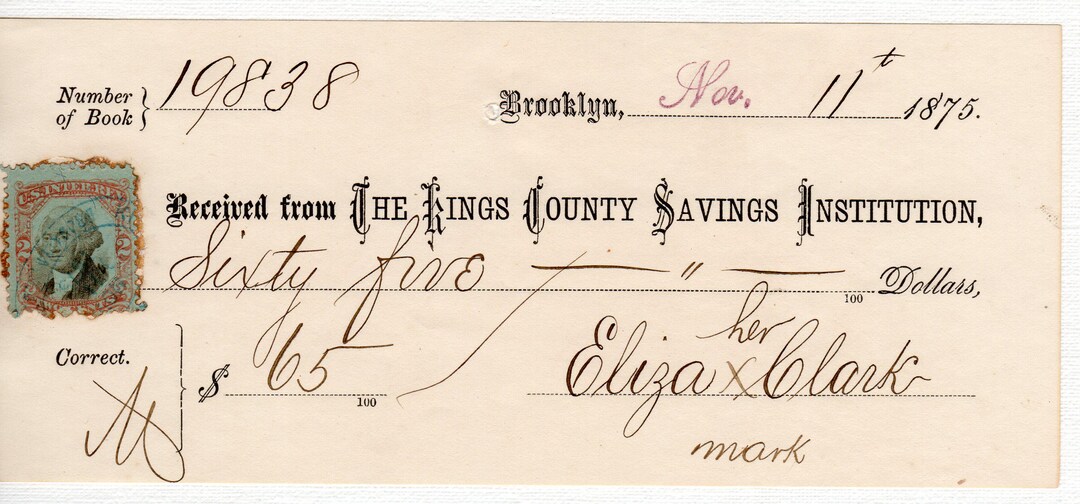 Number of Book } 19838
Brooklyn, Nov. 11t 1875.
Received from The Kings County Savings Institution,
Sixty five — " — 100 Dollars,
Correct.
$ 65 100
her
Eliza x Clark
mark
2 2